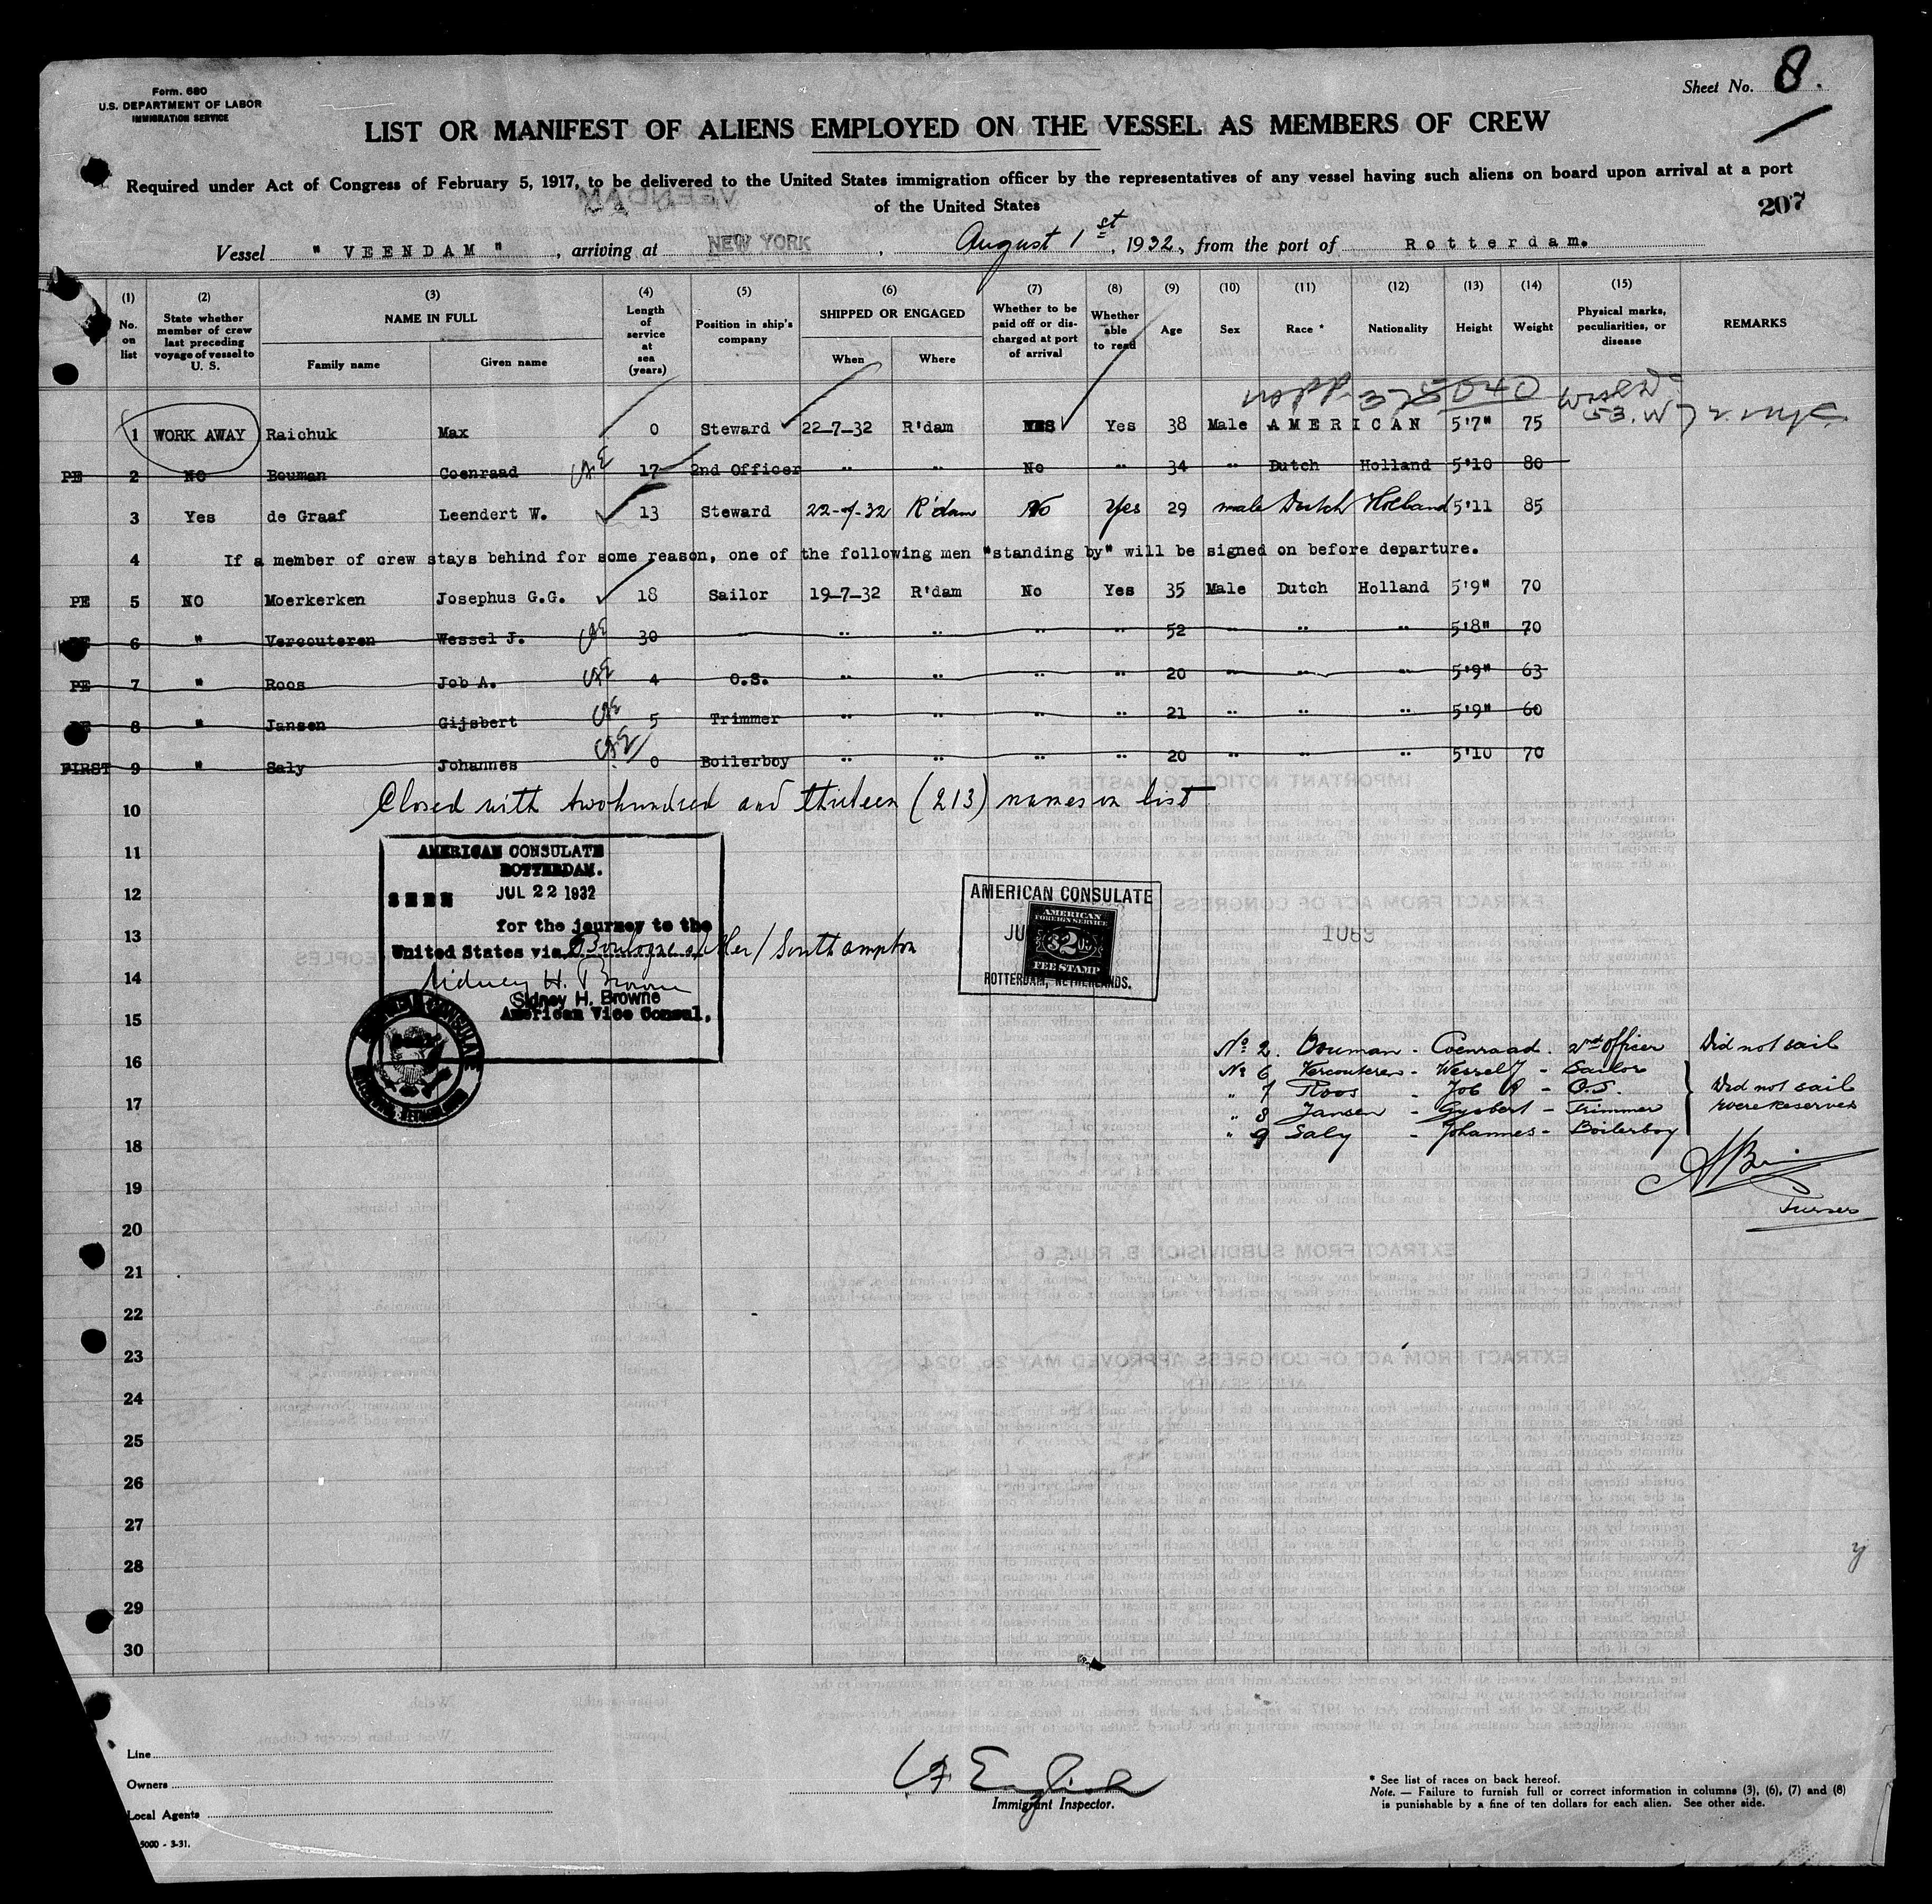 Form. 680
U.S. DEPARTMENT OF LABOR
IMMIGRATION SERVICE
Sheet No. 8.
LIST OR MANIFEST OF ALIENS EMPLOYED ON THE VESSEL AS MEMBERS OF CREW
Required under Act of Congress of February 5, 1917, to be delivered to the United States immigration officer by the representatives of any vessel having such aliens on board upon arrival at a port
of the United States
207
Vessel " VEENDAM ", arriving at NEW YORK, August 1st, 1932, from the port of Rotterdam.
(1) No. on list
(2) State whether member of crew last preceding voyage of vessel to U. S.
(3) NAME IN FULL Family name Given name
(4) Length of service at sea (years)
(5) Position in ship's company
(6) SHIPPED OR ENGAGED When Where
(7) Whether to be paid off or discharged at port of arrival
(8) Whether able to read
(9) Age
(10) Sex
(11) Race *
(12) Nationality
(13) Height
(14) Weight
(15) Physical marks, peculiarities, or disease
REMARKS
1 WORK AWAY Raichuk Max 0 Steward 22-7-32 R'dam YES Yes 38 Male AMERICAN 5'7" 75
PE 2 NO Bouman Coenraad 17 2nd Officer " " No " 34 " Dutch Holland 5'10 80
3 Yes de Graaf Leendert W. 13 Steward 22-7-32 R'dam No Yes 29 male Dutch Holland 5'11 85
4 If a member of crew stays behind for some reason, one of the following men "standing by" will be signed on before departure.
PE 5 NO Moerkerken Josephus G.G. 18 Sailor 19-7-32 R'dam No Yes 35 Male Dutch Holland 5'9" 70
PE 6 " Vercouteren Wessel J. 30 " " " " " 52 " " " 5'8" 70
PE 7 " Roos Job A. 4 O.S. " " " " 20 " " " 5'9" 63
PE 8 " Jansen Gijsbert 5 Trimmer " " " " 21 " " " 5'9" 60
FIRST 9 " Saly Johannes 0 Boilerboy " " " " 20 " " " 5'10 70
10 Closed with twohundred and thirteen (213) names on list
11
12
13
14
15
16
17
18
19
20
21
22
23
24
25
26
27
28
29
30
AMERICAN CONSULATE
ROTTERDAM.
SEEN JUL 22 1932
for the journey to the
United States via Boulogne s/Mer / Southampton
Sidney H. Browne
Sidney H. Browne
American Vice Consul.
AMERICAN CONSULATE
AMERICAN
FOREIGN SERVICE
$2.00
FEE STAMP
ROTTERDAM, NETHERLANDS.
No 2. Bouman - Coenraad. 2nd officer Did not sail
No 6 Vercouteren - Wessel J - Sailor
" 7 Roos - Job A - O.S. Did not sail
" 8 Jansen - Gysbert - Trimmer were reserves
" 9 Saly - Johannes - Boilerboy
Purser
Line
Owners
Local Agents
5000 - 3-31.
Immigrant Inspector.
* See list of races on back hereof.
Note. — Failure to furnish full or correct information in columns (3), (6), (7) and (8)
is punishable by a fine of ten dollars for each alien. See other side.